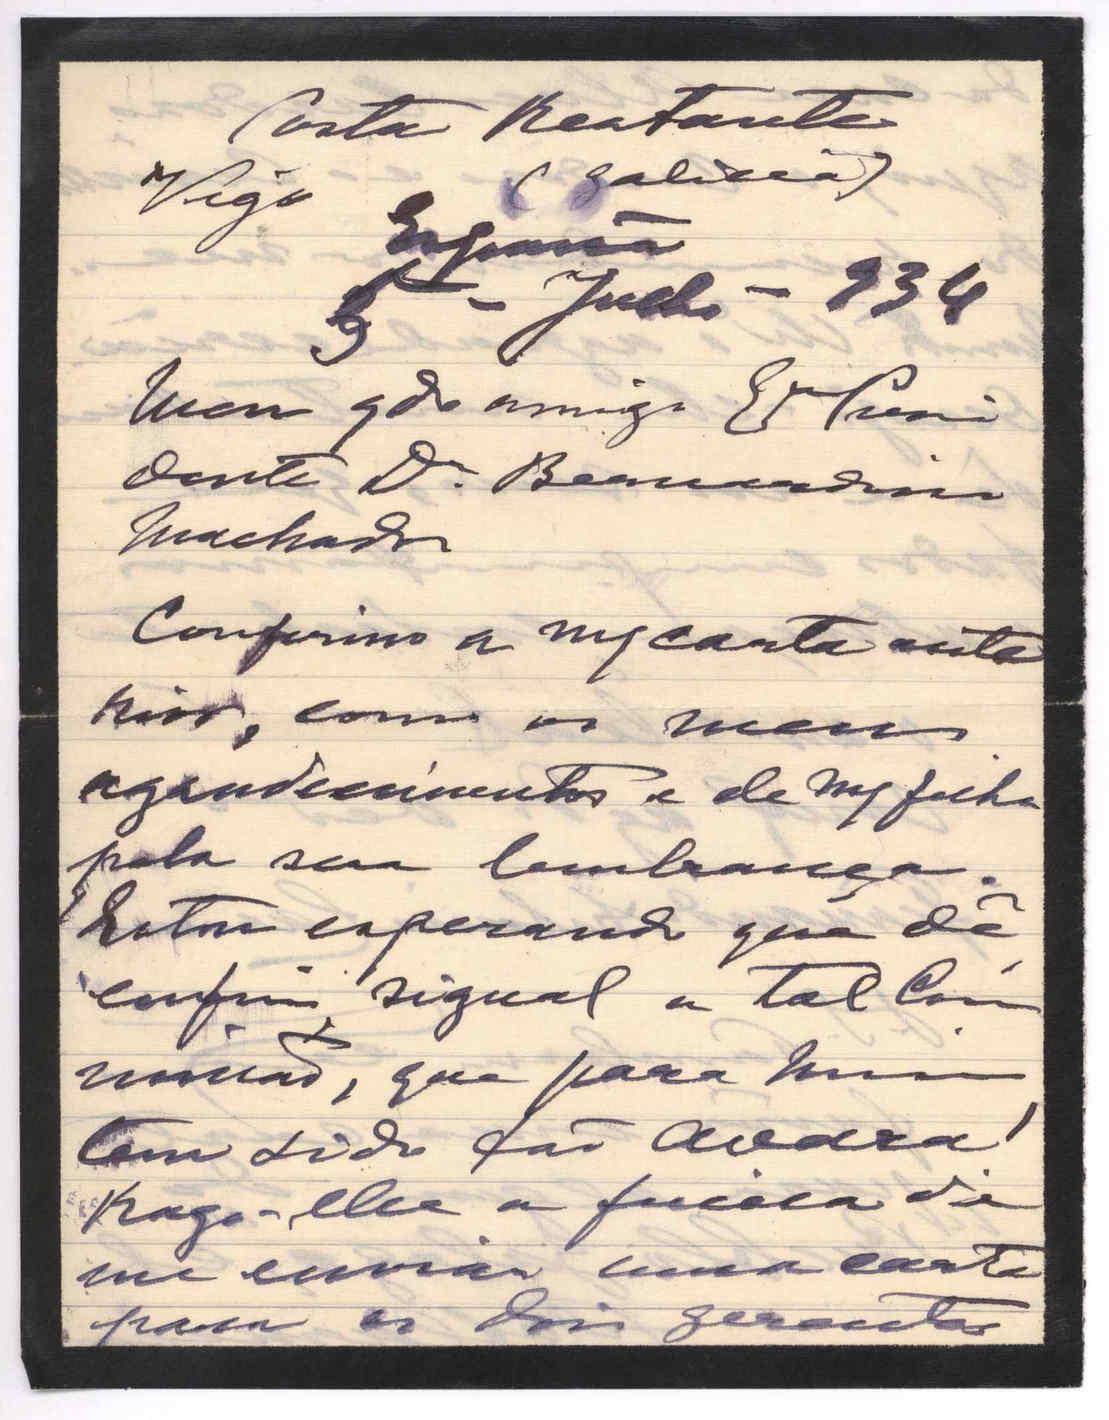 Posta Restante
Vigo (Galicia)
España
5 - Julho - 934
Meu qdo amigo Exmo Presi
dente Dr. Bernardino
Machado
Confirmo a mª carta ante
rior, com os meus
agradecimentos e de mª filha
pela sua lembrança.
Estou esperando que dê
enfim signal a tal Com
missão, que para mim
tem sido tão avara!
Rogo-lhe a fineza de
me enviar uma carta
para os dois gerentes